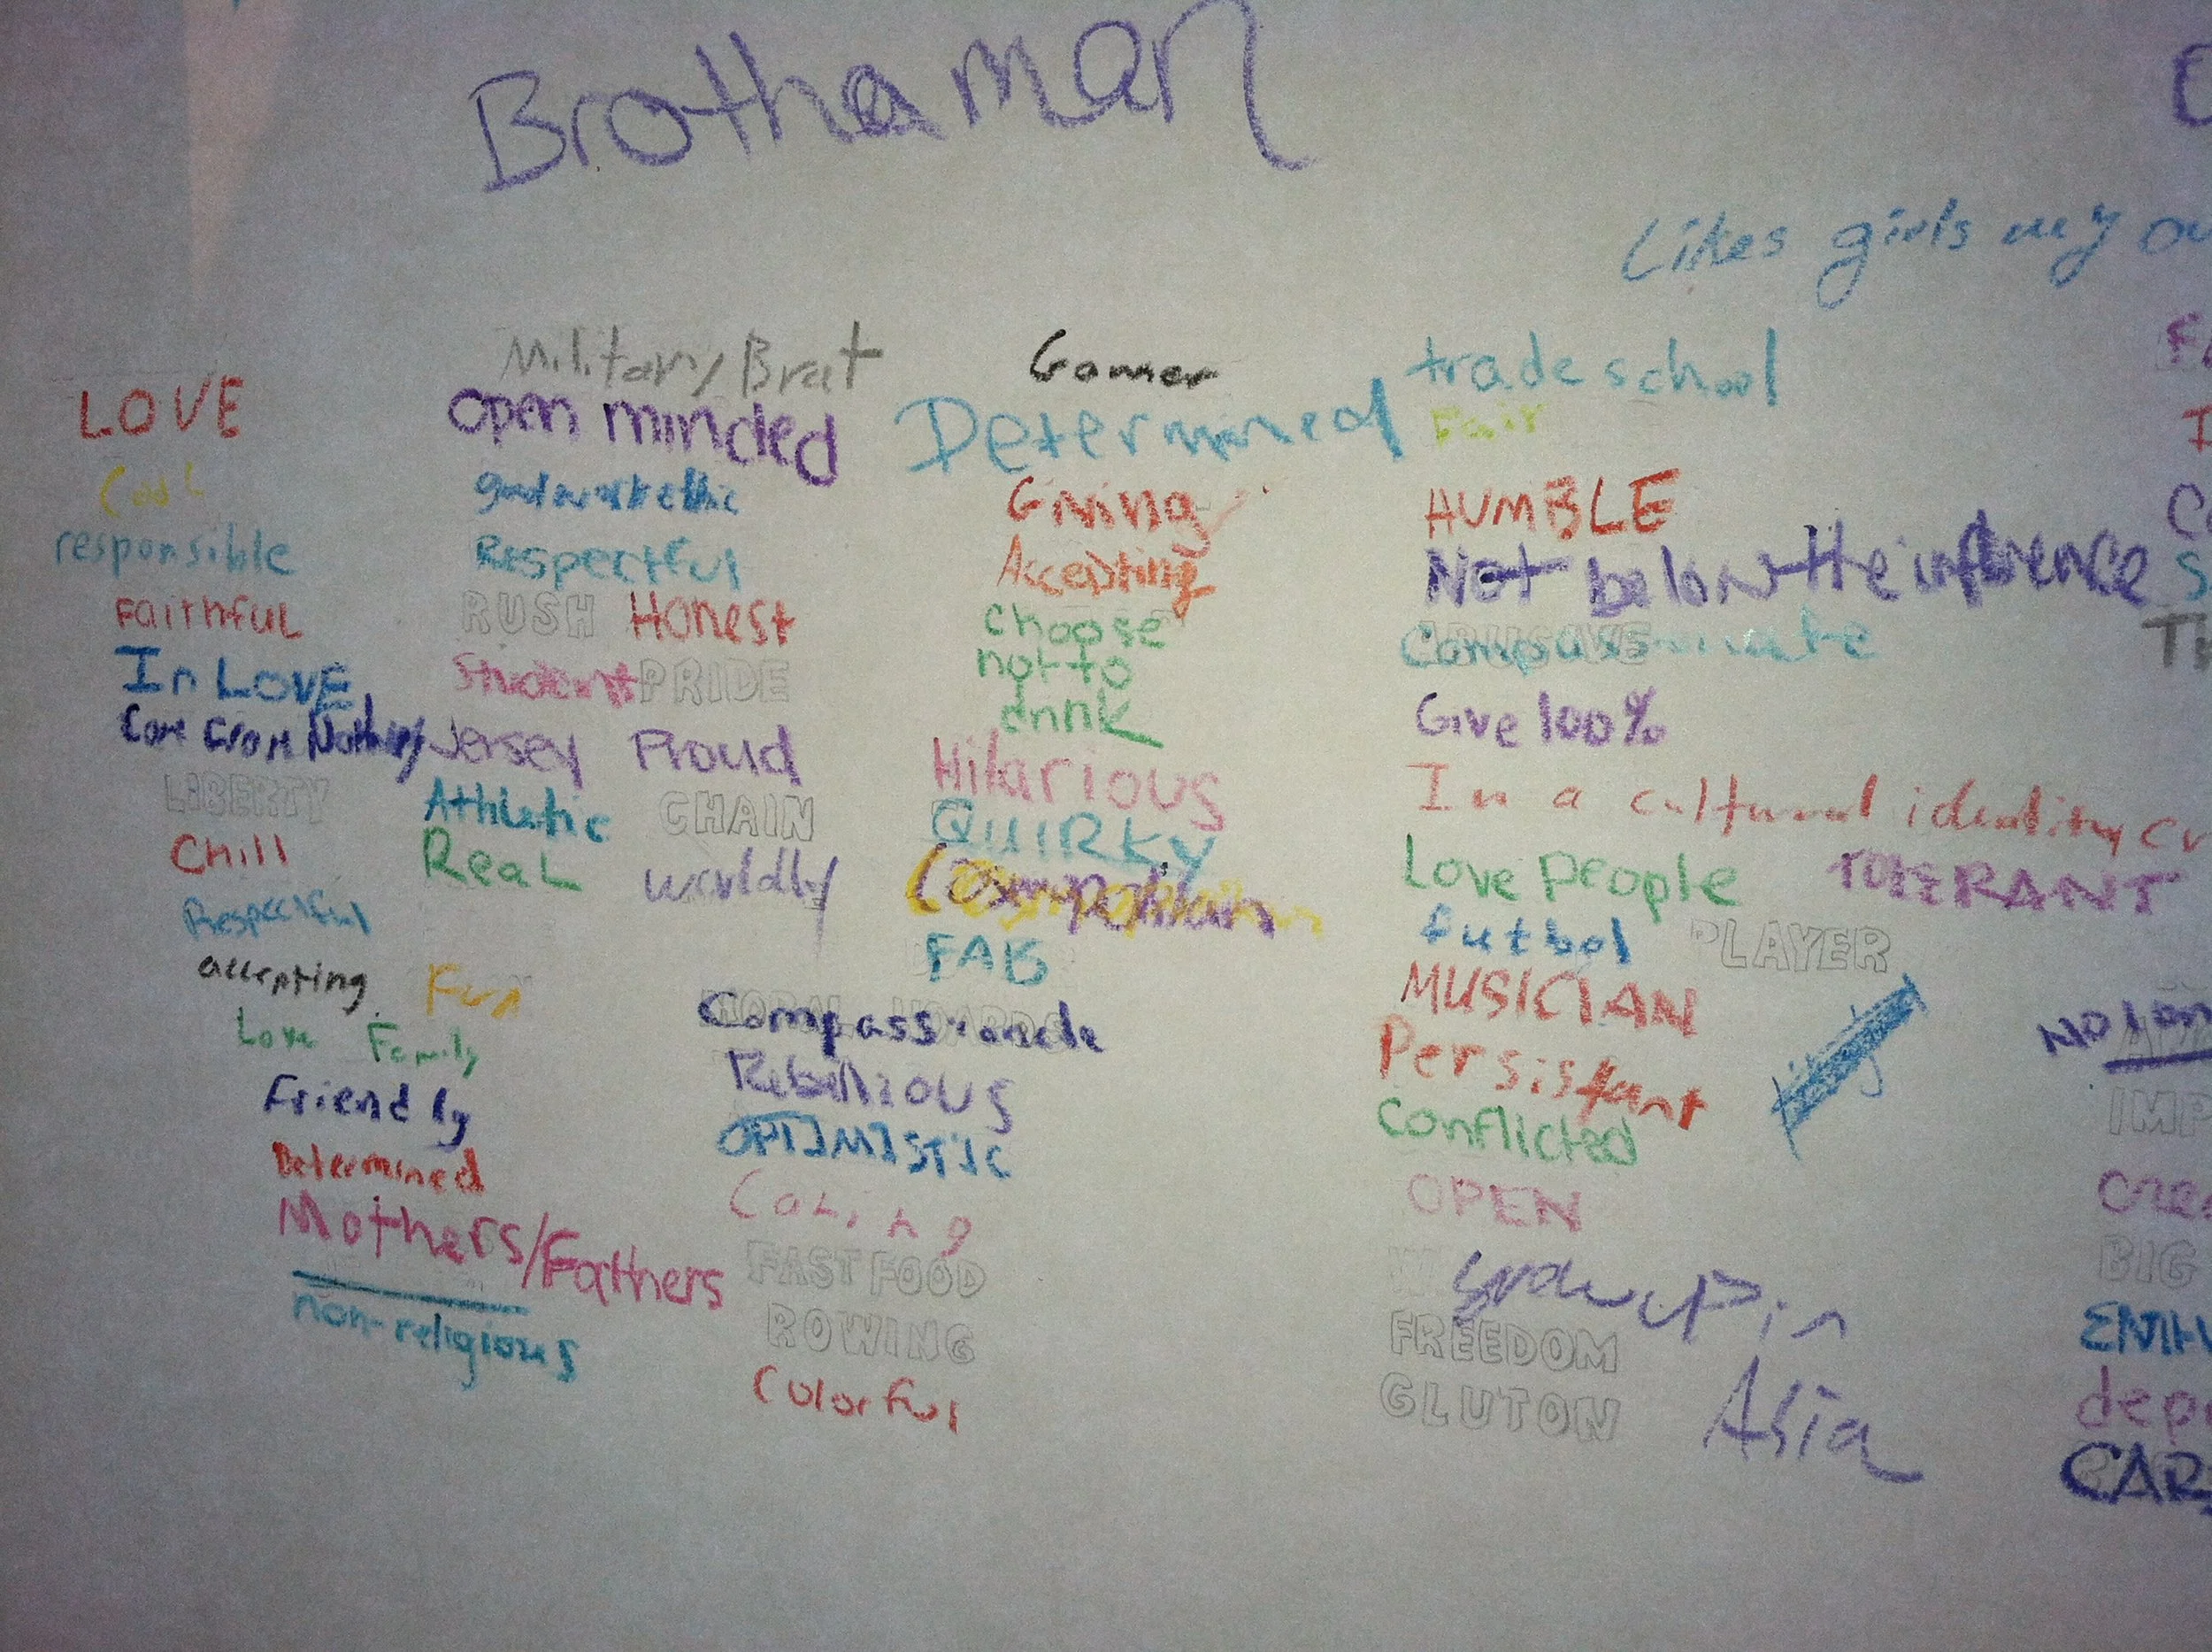 Brothaman
Likes girls my
Military Brat
Gamer
trade school
LOVE
open minded
Determined
Fair
Cool
good work ethic
Giving
HUMBLE
responsible
Respectful
Accepting
Not below the influence
Faithful
RUSH Honest
choose
not to
drink
Compassionate
In LOVE
Student PRIDE
Give 100%
Come From Nothing
Jersey Proud
Hilarious
In a cultural identity
LIBERTY
Athletic
CHAIN
QUIRKY
Love People
TOLERANT
Chill
Real
worldly
Cosmopolitan
futbol PLAYER
Respectful
FAB
MUSICIAN
accepting
Fun
Compassionate
Persistant
Love Family
Rebellious
Conflicted
Friendly
OPTIMISTIC
OPEN
Determined
Caring
Mothers/Fathers
FAST FOOD
Grew up in
Asia
non-religious
ROWING
FREEDOM
Colorful
GLUTON